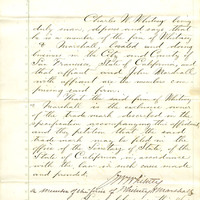 Charles W. Whitney being
duly sworn, deposes and says that
he is a member of the firm of Whitney
& Marshall, located and doing
business in the City and County of
San Francisco, State of California, and
that affiant and John Marshall
with affiant are the members com-
prising said firm.
That the said firm of Whitney
& Marshall is the exclusive owner
of the trade mark described in the
specification accompanying this affidavit
and they petition that the said
trade mark may be filed in the
office of the Secretary of State, of the
State of California, in accordance
with the law in such case made
and provided.
Whitney
a member of the firm of Whitney & Marshall